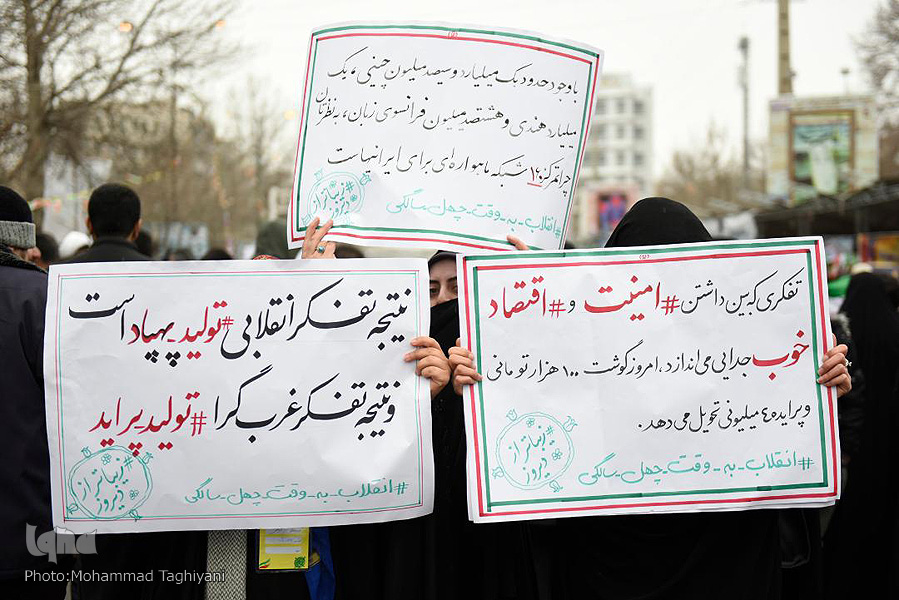 با وجود حدود یک میلیارد و سیصد میلیون چینی، یک
میلیارد هندی و هشتصد میلیون فرانسوی زبان، به نظرتان
چرا تمرکز ۱۶۰ شبکه ماهواره ای برای ایرانیهاست
#انقلاب_به_وقت_چهل_سالگی
#زیباتر از
دیروز
نتیجه تفکر انقلابی #تولید_پهپاد است
و نتیجه تفکر غرب گرا #تولید_پراید
#زیباتر از
دیروز
#انقلاب_به_وقت_چهل_سالگی
تفکری که بین داشتن #امنیت و #اقتصاد
خوب جدایی می اندازد، امروز گوشت ۱۰۰ هزار تومانی
و پراید ٤٠ میلیونی تحویل می دهد.
#زیباتر از
دیروز
#انقلاب_به_وقت_چهل_سالگی
iqna
Photo:Mohammad Taghiyani